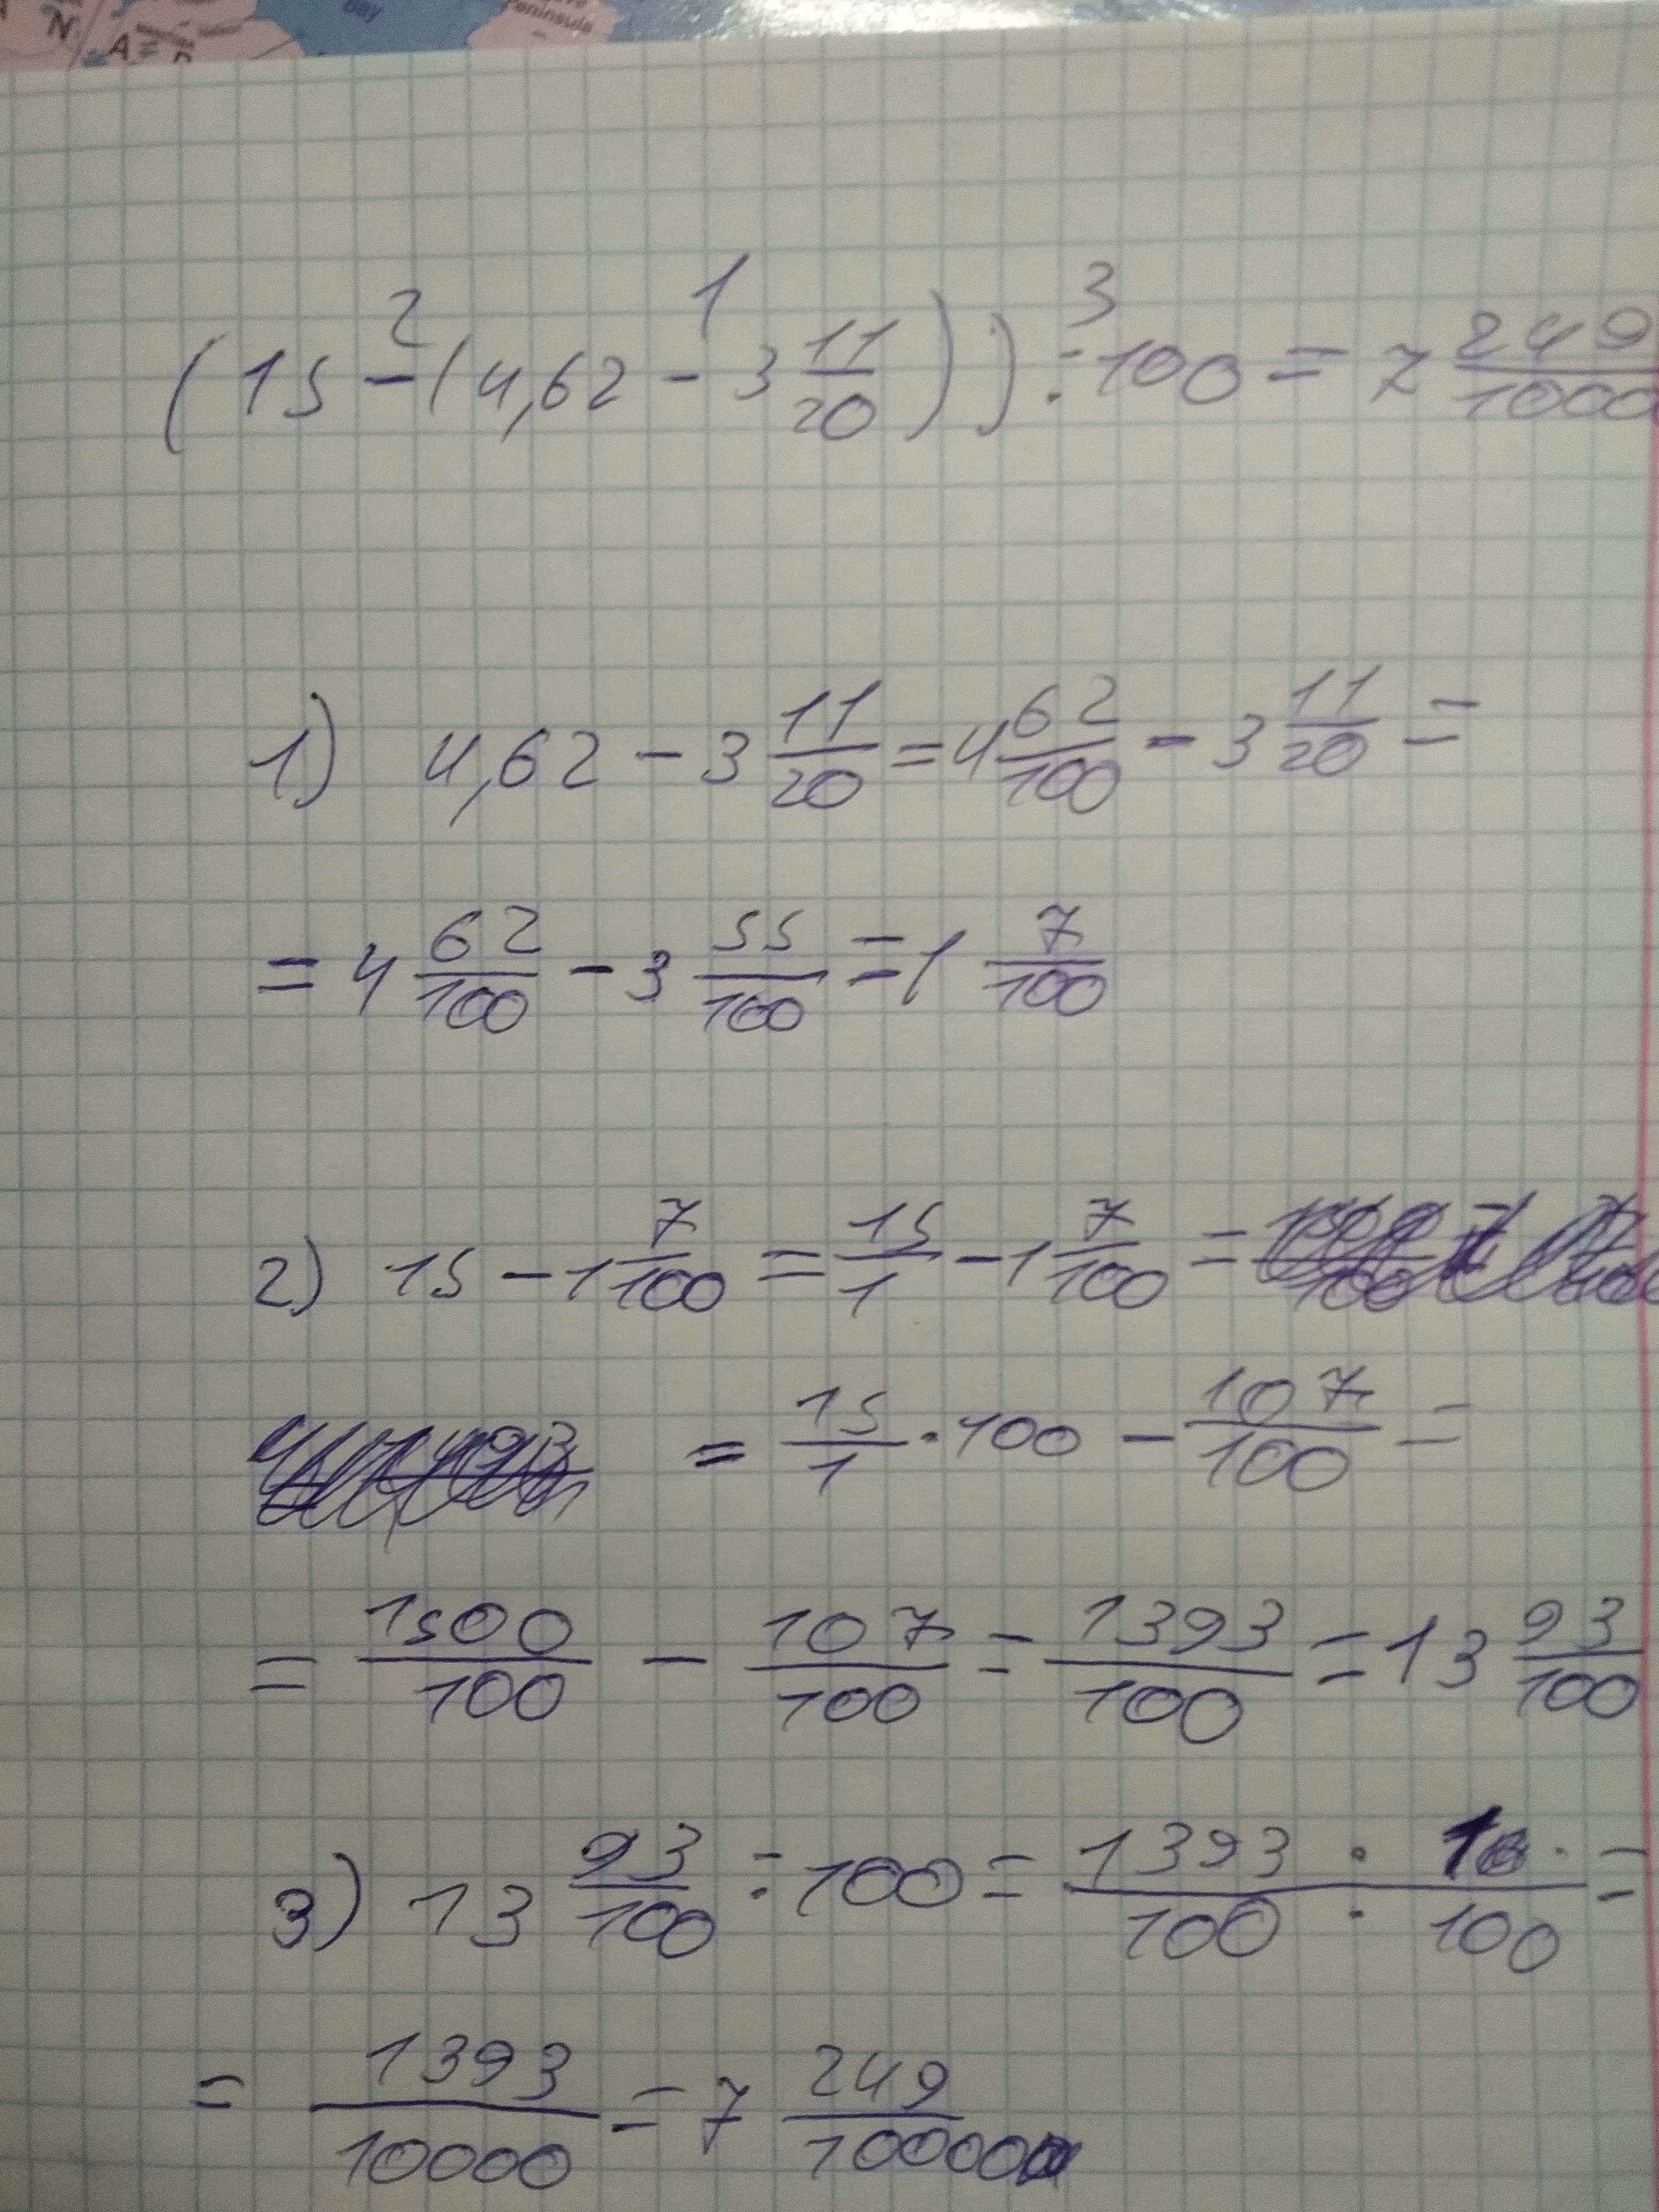 N
A = D
Bay
Peninsula
2 1 3
(15 - (4,62 - 3 11/20)) ÷ 100 = 7 249/1000
1) 4,62 - 3 11/20 = 4 62/100 - 3 11/20 =
= 4 62/100 - 3 55/100 = 1 7/100
2) 15 - 1 7/100 = 15/1 - 1 7/100 =
= 15/1 · 100 - 107/100 =
= 1500/100 - 107/100 = 1393/100 = 13 93/100
3) 13 93/100 ÷ 100 = 1393 · 1/100 · 100 =
= 1393/10000 = 7 249/10000